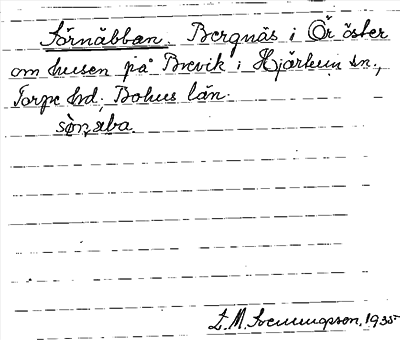 Sörnäbban. Bergnäs i Ör öster
om husen på Brevik i Hjärtum sn.,
Torpe hd, Bohus län.
sö̀ṇ æba.
S. M. Svenungsson, 1935